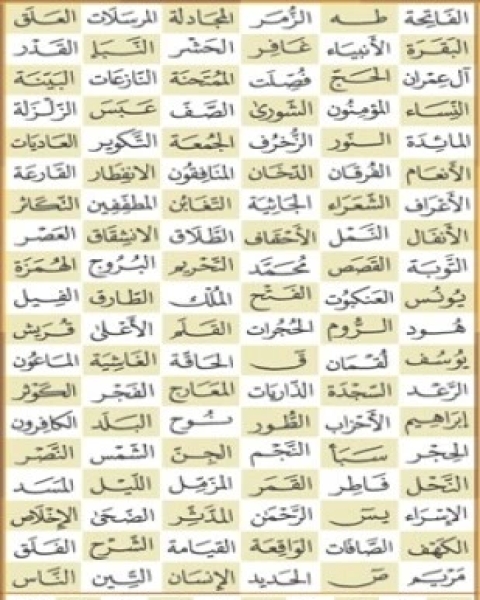 الفَاتِحَة طـه الزُّمَر المُجَادلة المُرسَلات العَلَق
البَقَرَة الأنبيَاء غَافِر الحَشر النَّبَإ القَدر
آل عِمرَان الحَج فُصِّلَت المُمتَحنَة النّازعَات البَيّنَة
النِّسَاء المؤمنُون الشورىٰ الصَّف عَبَسَ الزّلزَلة
المَائدَة النُّور الزُّخرُف الجُمعَة التَّكوير العَاديَات
الأنعَام الفُرقَان الدّخَان المنَافِقُون الانفِطَار القَارعَة
الأعرَاف الشُّعَرَاء الجَاثيَة التغَابُن المطفّفِين التَّكاثر
الأنفَال النَّمل الأحقَاف الطَّلَاق الانشقَاق العَصر
التَّوبَة القَصَص مُحَمَّد التَّحريم البُرُوج الهُمَزَة
يُونُس العَنكبُوت الفَتْح المُلك الطّارق الفِيل
هُود الرُّوم الحُجُرات القَلَم الأعلىٰ قُرَيش
يُوسُف لُقمَان قٓ الحَاقّة الغَاشيَة المَاعُون
الرَّعد السَّجْدَة الذّاريَات المعَارج الفَجر الكَوثَر
إبراهِيم الأحزَاب الطُّور نُوح البَلَد الكافِرون
الحِجر سَبَأ النَّجم الجِن الشَّمس النَّصر
النَّحل فَاطِر القَمَر المزّمّل اللّيل المَسَد
الإسرَاء يسٓ الرَّحمٰن المدَّثِّر الضّحىٰ الإخلَاص
الكَهف الصَّافات الوَاقِعَة القِيَامَة الشَّرح الفَلَق
مَريَم صٓ الحَديد الإنسَان التِّين النَّاس